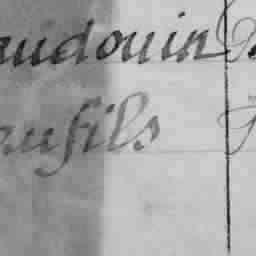 audouin
aufils